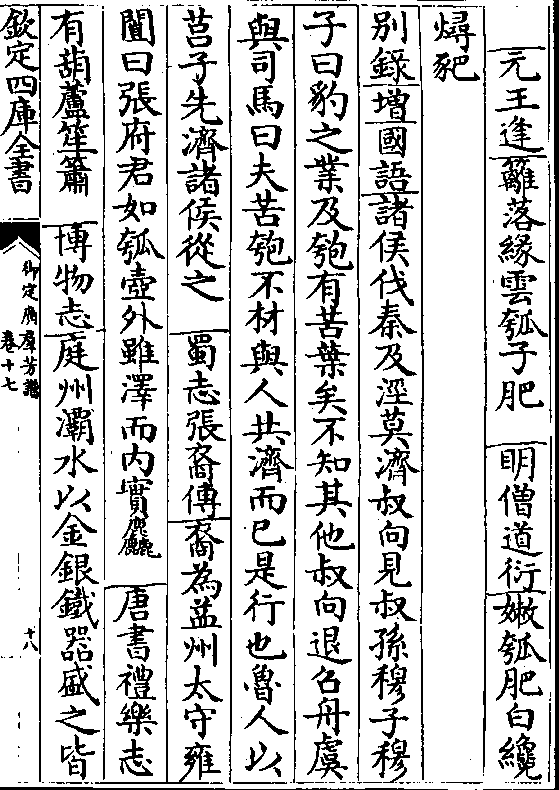 元王逢籬落緣雲瓠子肥　明僧道衍嫩瓠肥白纔
燖豝
別錄増國語諸侯伐秦及涇莫濟叔向見叔孫穆子穆
子曰豹之業及匏有苦葉矣不知其他叔向退召舟虞
與司馬曰夫苦匏不材與人共濟而已是行也魯人以
莒子先濟諸侯從之　蜀志張裔傳裔為益州太守雍
闓曰張府君如瓠壺外雖澤而内實麤　唐書禮樂志
有葫蘆笙簫　博物志庭州灞水以金銀鐵器盛之皆
欽定四庫全書
御定廣羣芳譜
卷十七
十八